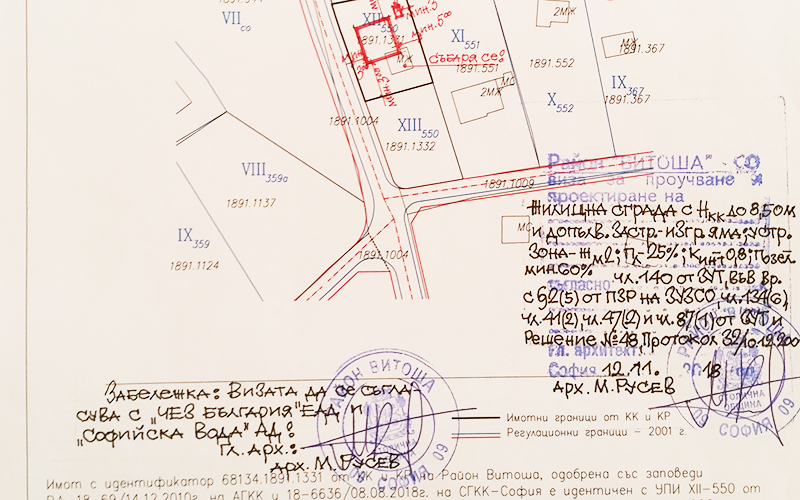 VII
XII 550
1891.1331
мин.5
мин.5
МЖ
СЪБАРЯ СЕ!
XI 551
1891.551
2МЖ
1891.552
X 552
МЖ
1891.367
IX 367
1891.367
2МЖ
МС
1891.1004
XIII 550
1891.1332
VIII 359а
1891.1137
IX 359
1891.1124
1891.1009
1891.1004
МС
Район "ВИТОША" - СО
виза за проучване и
проектиране на
ЖИЛИЩНА СГРАДА С Нкк ДО 8,50М
И ДОПЪЛВ. ЗАСТР.-ИЗГР. ЯМА; УСТР.
ЗОНА-Жм2; Пл 25%; Кинт 0,8; Пъзел.
МИН.60% ЧЛ.140 ОТ ЗУТ, ВЪВ ВР.
съгласно
С §2(5) ОТ ПЗР НА ЗУЗСО, ЧЛ.134(6),
ЧЛ.41(2), ЧЛ.47(2) И ЧЛ.87(1) ОТ ЗУТ И
РЕШЕНИЕ №48 ПРОТОКОЛ 32/
Гл. архитект:
София 12.11. 2018
АРХ. М.РУСЕВ
ЗАБЕЛЕЖКА: ВИЗАТА ДА СЕ СЪГЛА-
СУВА С "ЧЕЗ БЪЛГАРИЯ" ЕАД И
"СОФИЙСКА ВОДА" АД!
ГЛ. АРХ.:
АРХ. М.РУСЕВ
РАЙОН ВИТОША
СОФИЯ 09
СТОЛИЧНА
ОБЩИНА
СОФИЯ 09
Имотни граници от КК и КР
Регулационни граници - 2001 г.
Имот с идентификатор 68134.1891.1331 от КК и КР на Район Витоша, одобрена със заповеди
РД-18-69/14.12.2010г. на АГКК и 18-6636/08.08.2018г. на СГКК-София е идентичен с УПИ XII-550 от